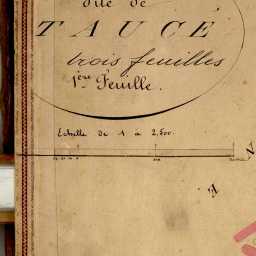 dite de
TAUCÉ
trois feuilles
1ère Feuille.
Echelle de 1 à 2,500.